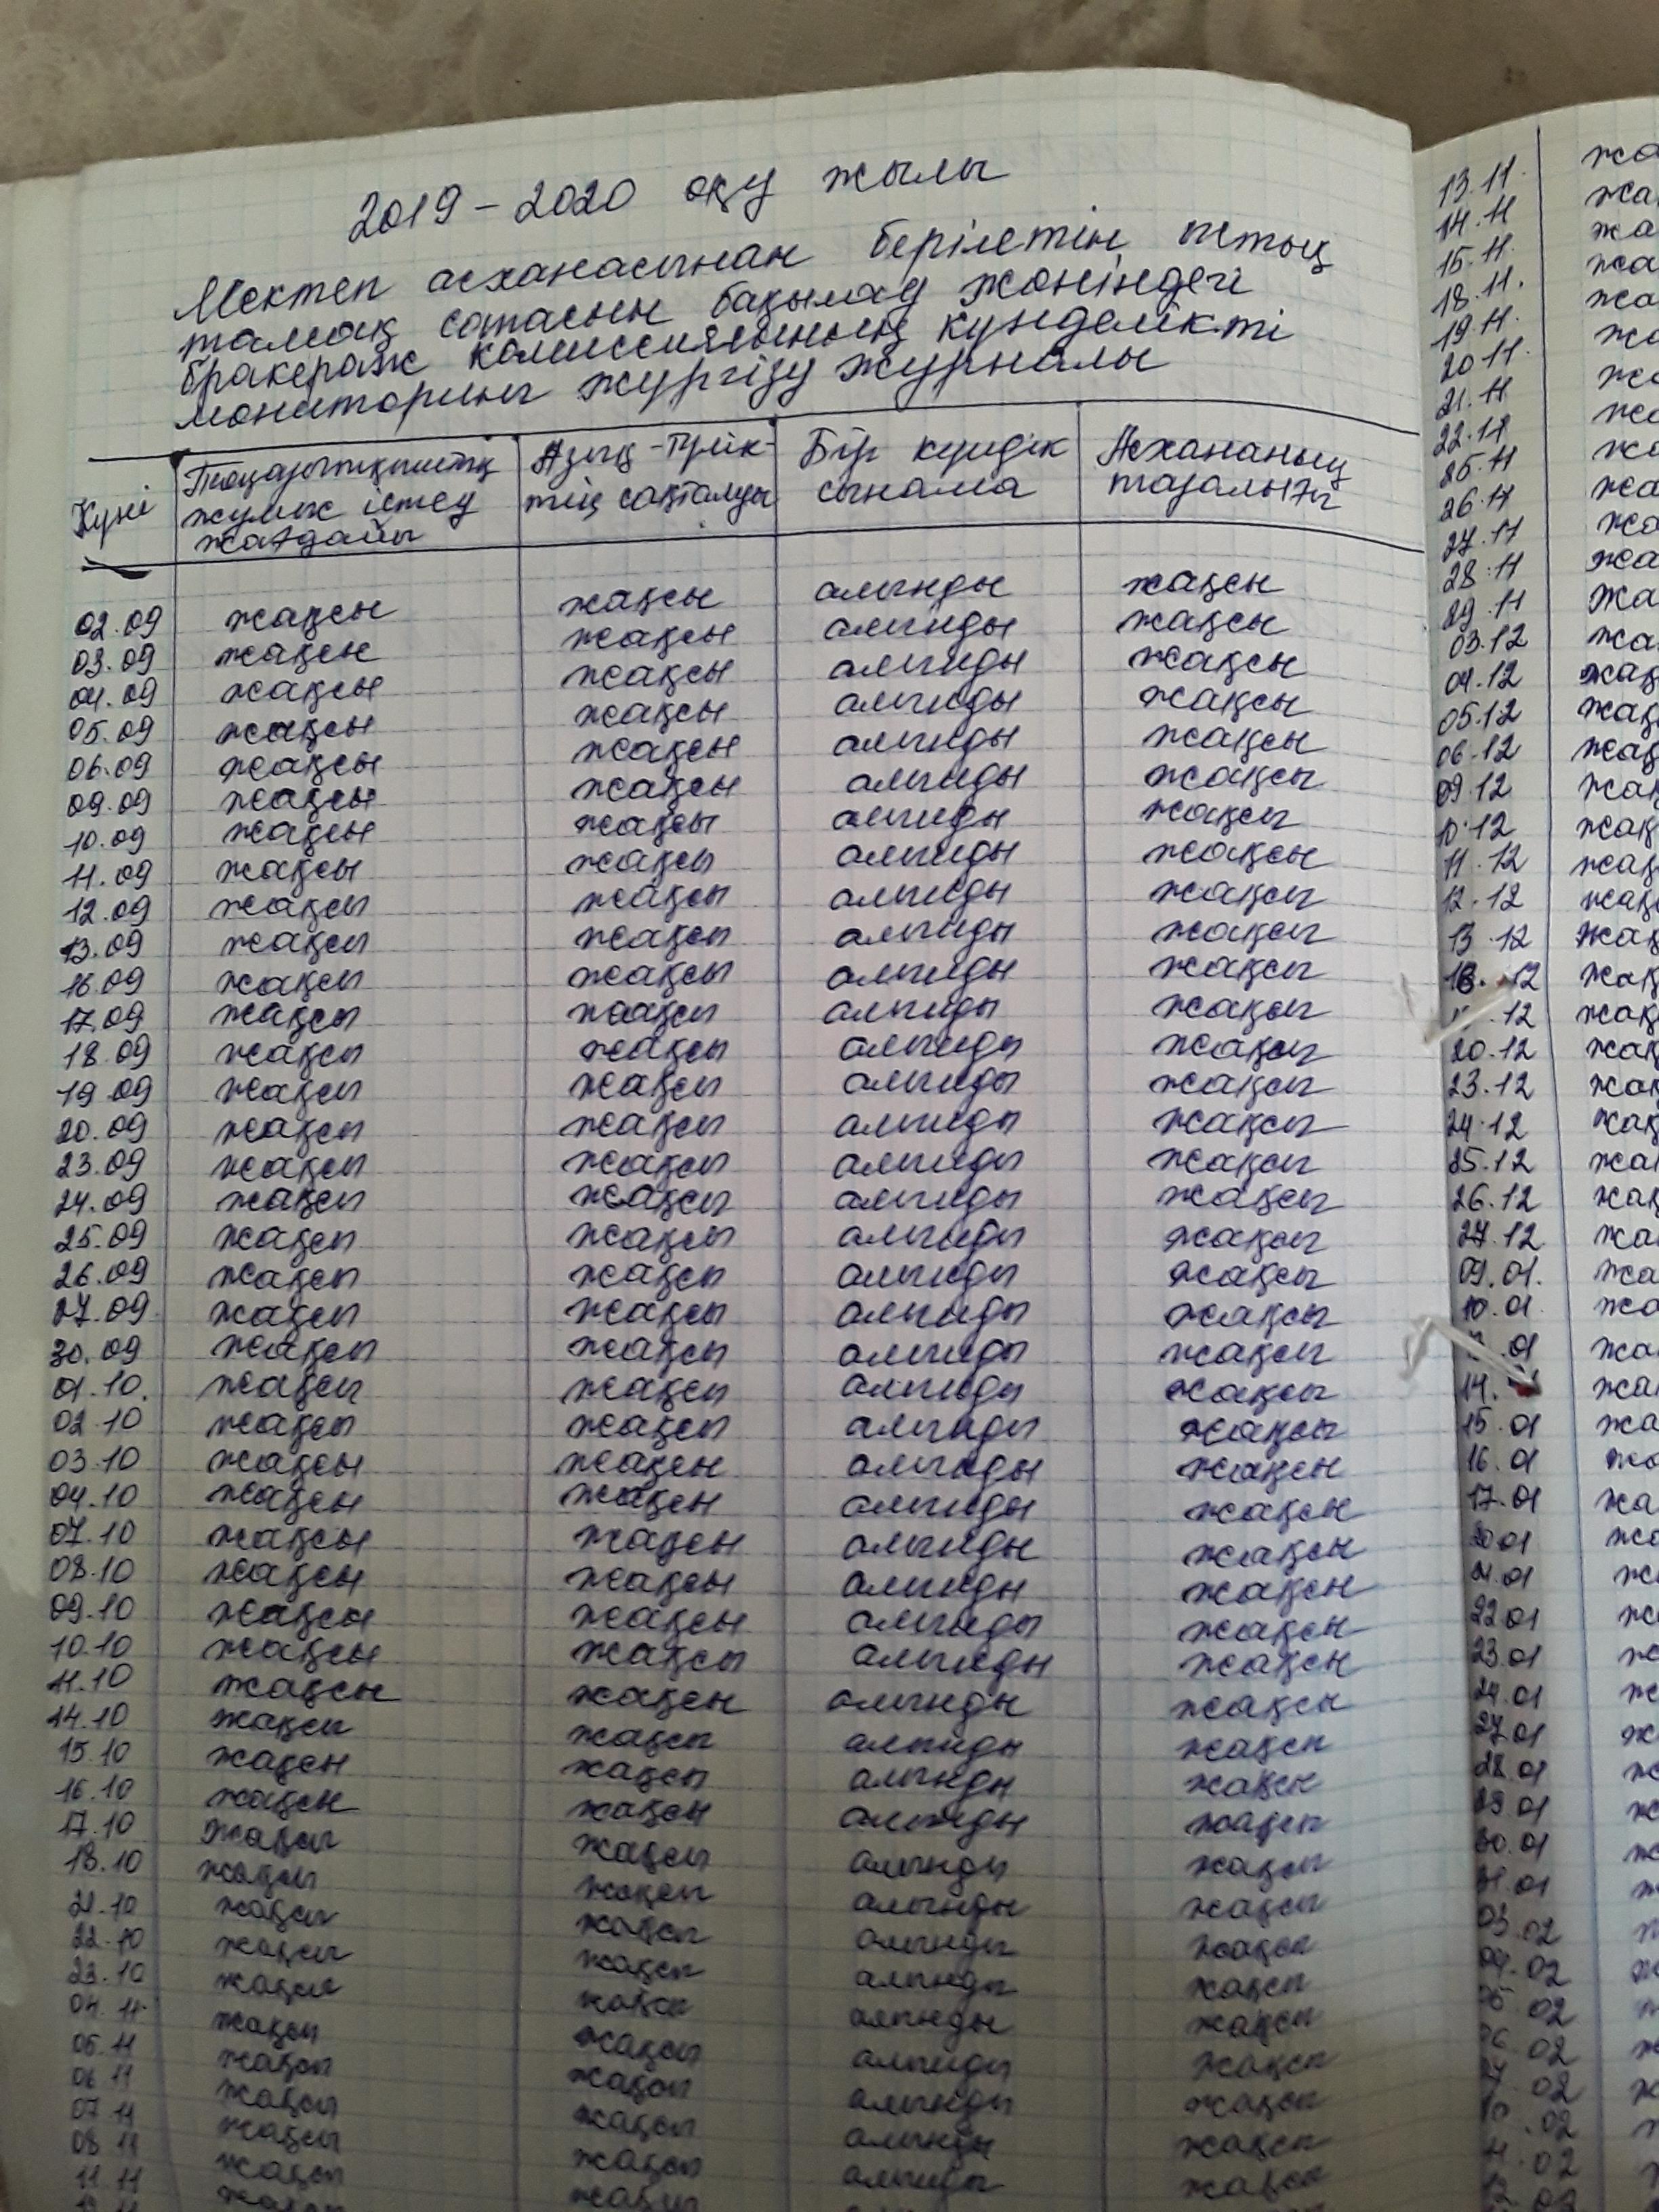 2019-2020 оқу жылы
Мектеп асханасынан берілетін ыстық
тамақ сапасын бақылау жөніндегі
бракераж комиссиясының күнделікті
мониторинг жүргізу журналы
Күні Тоңазытқыштың жұмыс істеу жағдайы Азық-түлік-тің сақталуы Бір күндік сынама Асхананың тазалығы
02.09 жақсы жақсы алынды жақсы
03.09 жақсы жақсы алынды жақсы
04.09 жақсы жақсы алынды жақсы
05.09 жақсы жақсы алынды жақсы
06.09 жақсы жақсы алынды жақсы
09.09 жақсы жақсы алынды жақсы
10.09 жақсы жақсы алынды жақсы
11.09 жақсы жақсы алынды жақсы
12.09 жақсы жақсы алынды жақсы
13.09 жақсы жақсы алынды жақсы
16.09 жақсы жақсы алынды жақсы
17.09 жақсы жақсы алынды жақсы
18.09 жақсы жақсы алынды жақсы
19.09 жақсы жақсы алынды жақсы
20.09 жақсы жақсы алынды жақсы
23.09 жақсы жақсы алынды жақсы
24.09 жақсы жақсы алынды жақсы
25.09 жақсы жақсы алынды жақсы
26.09 жақсы жақсы алынды жақсы
27.09 жақсы жақсы алынды жақсы
30.09 жақсы жақсы алынды жақсы
01.10. жақсы жақсы алынды жақсы
02.10 жақсы жақсы алынды жақсы
03.10 жақсы жақсы алынды жақсы
04.10 жақсы жақсы алынды жақсы
07.10 жақсы жақсы алынды жақсы
08.10 жақсы жақсы алынды жақсы
09.10 жақсы жақсы алынды жақсы
10.10 жақсы жақсы алынды жақсы
11.10 жақсы жақсы алынды жақсы
14.10 жақсы жақсы алынды жақсы
15.10 жақсы жақсы алынды жақсы
16.10 жақсы жақсы алынды жақсы
17.10 жақсы жақсы алынды жақсы
18.10 жақсы жақсы алынды жақсы
21.10 жақсы жақсы алынды жақсы
22.10 жақсы жақсы алынды жақсы
23.10 жақсы жақсы алынды жақсы
04.11 жақсы жақсы алынды жақсы
05.11 жақсы жақсы алынды жақсы
06.11 жақсы жақсы алынды жақсы
07.11 жақсы жақсы алынды жақсы
08.11 жақсы жақсы алынды жақсы
11.11 жақсы жақсы
13.11
14.11
15.11
18.11.
19.11
20.11
21.11
22.11
25.11
26.11
27.11
28.11
29.11
03.12
04.12
05.12
06.12
09.12
10.12
11.12
12.12
13.12
16.12
.12
20.12
23.12
24.12
25.12
26.12
27.12
09.01.
10.01
.01
14.
15.01
16.01
17.01
20.01
21.01
22.01
23.01
24.01
27.01
28.01
29.01
30.01
31.01
03.02
04.02
05.02
06.02
07.02
10.02
11.02